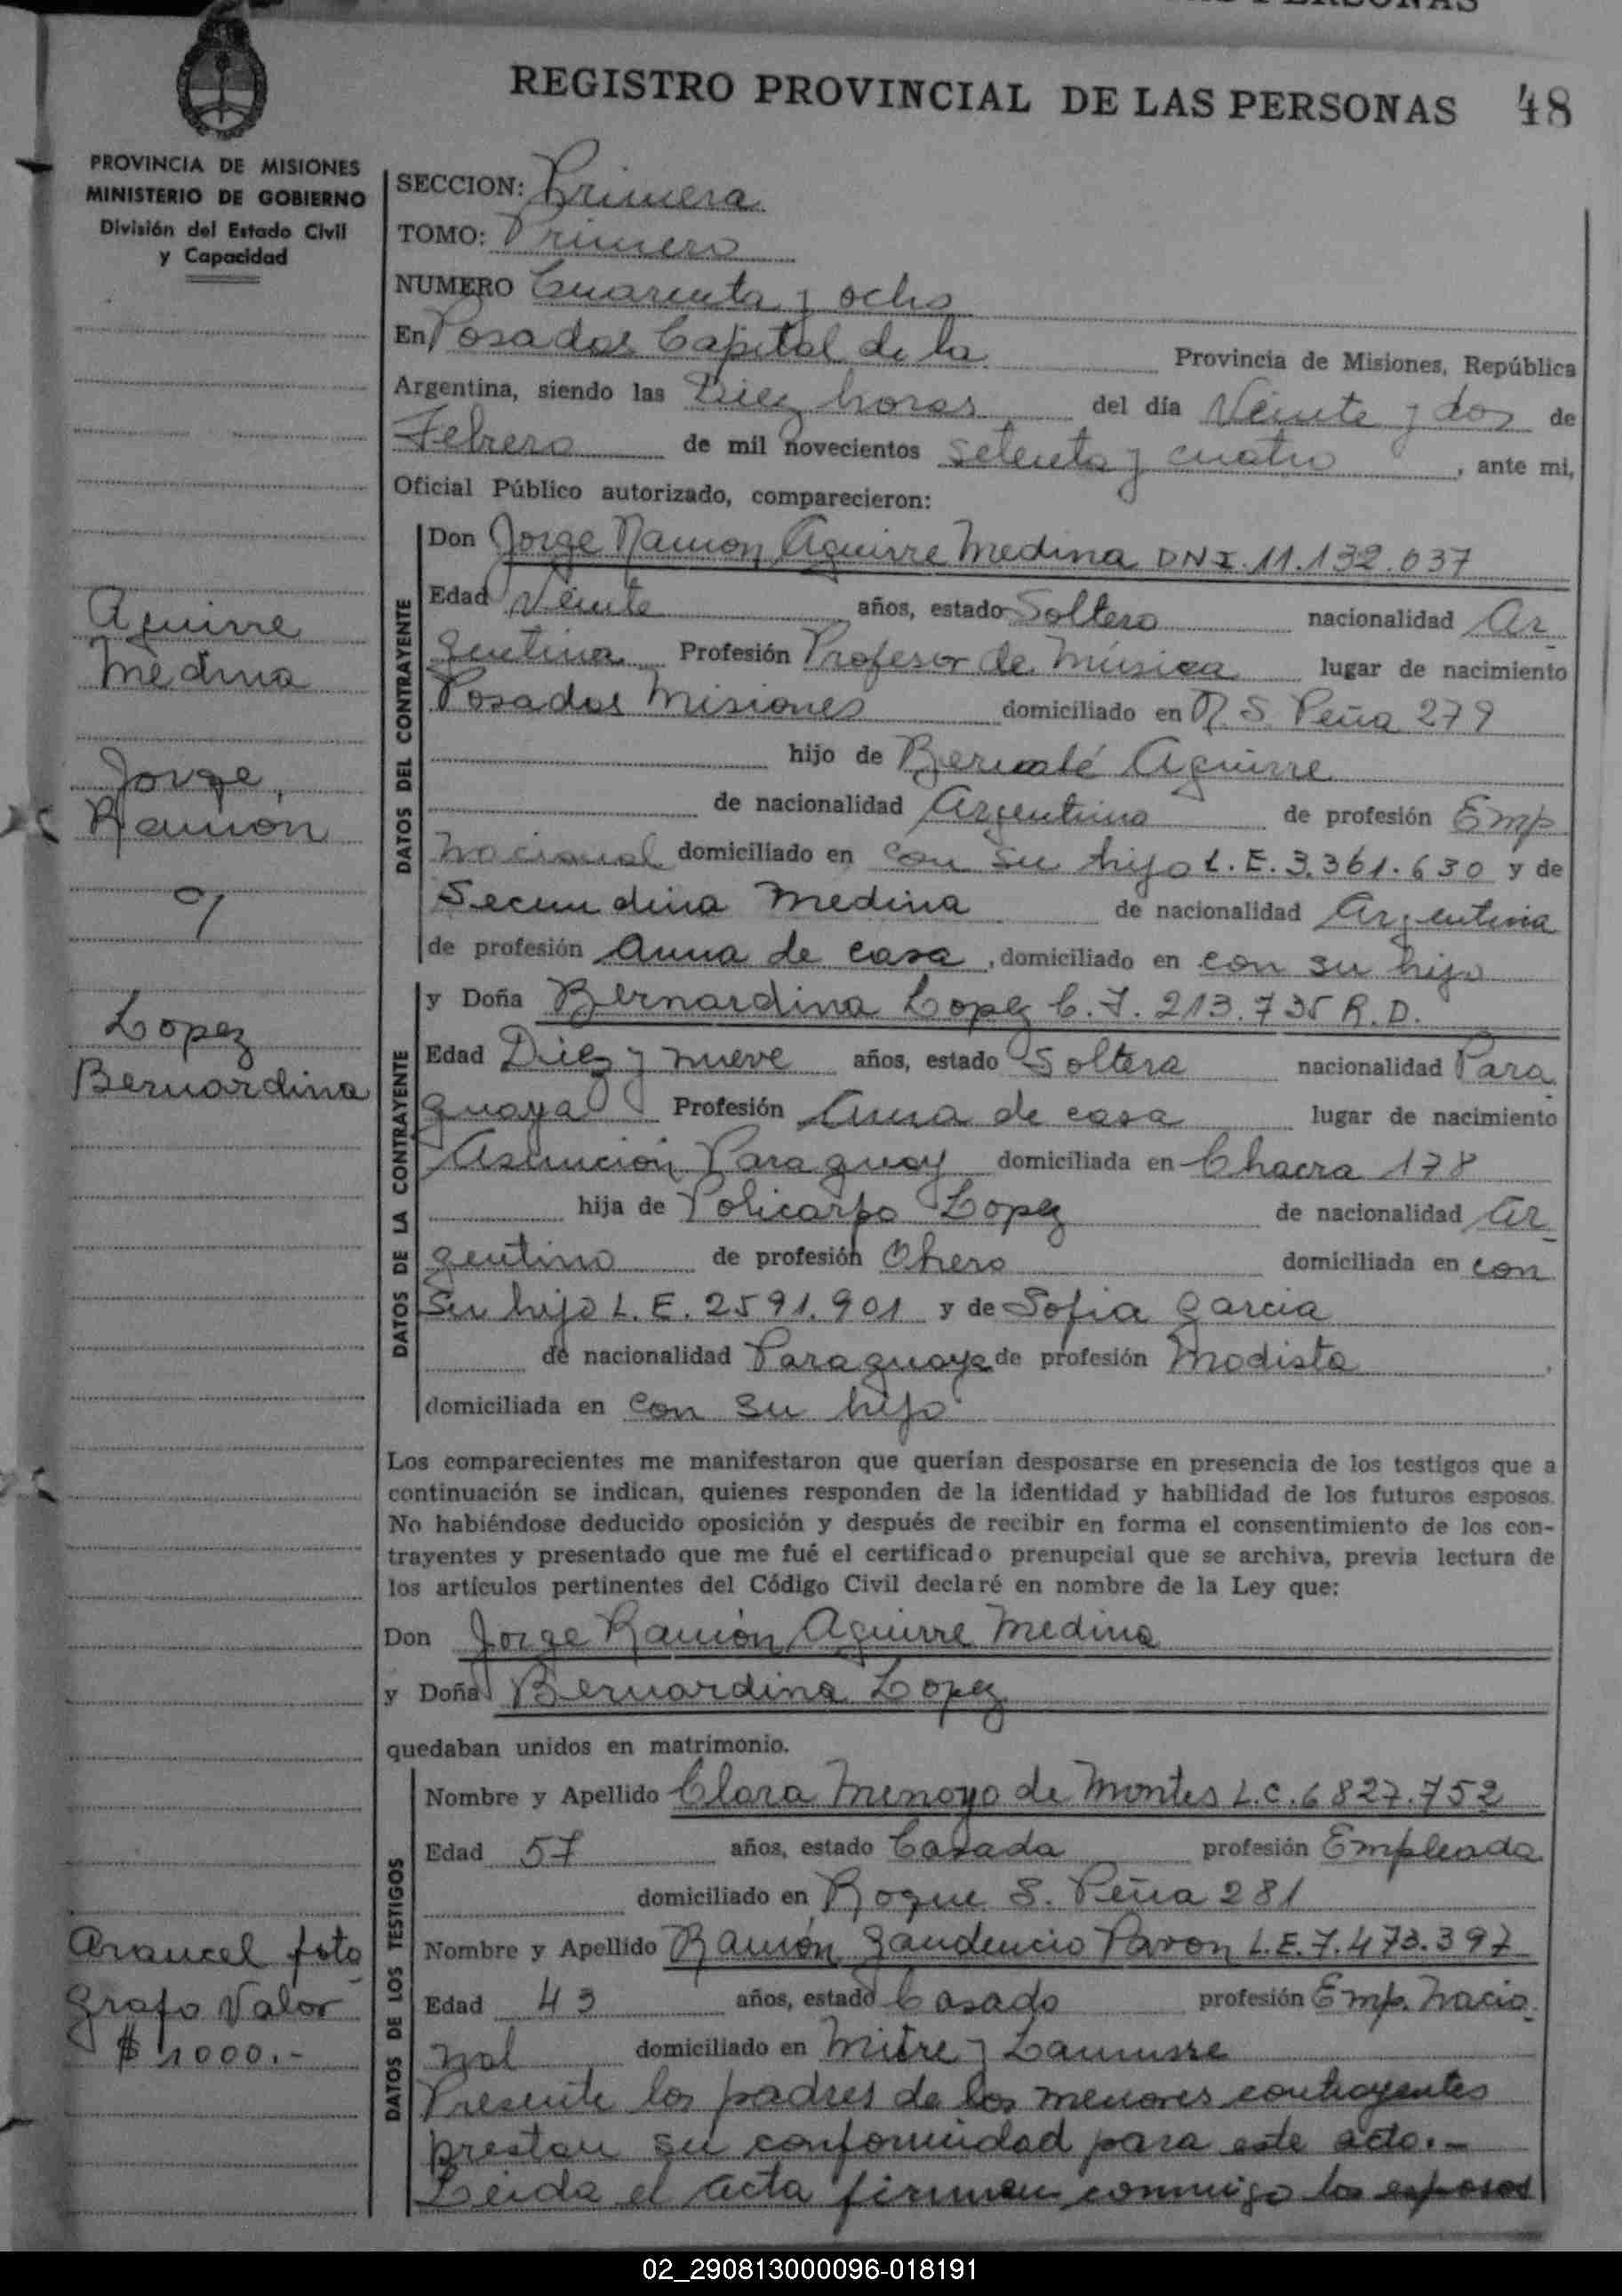 REGISTRO PROVINCIAL DE LAS PERSONAS 48
PROVINCIA DE MISIONES
MINISTERIO DE GOBIERNO
División del Estado Civil
y Capacidad
SECCION: Primera
TOMO: Primero
NUMERO Cuarenta y ocho
En Posadas Capital de la Provincia de Misiones, República
Argentina, siendo las Diez horas del día Veinte y dos de
Febrero de mil novecientos setenta y cuatro, ante mi,
Oficial Público autorizado, comparecieron:
Aguirre
Medina
Jorge,
Ramon
y
Lopez
Bernardina
DATOS DEL CONTRAYENTE
Don Jorge Ramon Aguirre Medina DNI. 11.132.037
Edad Veinte años, estado Soltero nacionalidad Ar
gentina Profesión Profesor de Música lugar de nacimiento
Posadas Misiones domiciliado en R. S. Peña 279
hijo de Bernabé Aguirre
de nacionalidad Argentino de profesión Emp
Nacional domiciliado en con su hijo L.E. 3.361.630 y de
Secundina Medina de nacionalidad Argentina
de profesión Ama de casa, domiciliado en con su hijo
DATOS DE LA CONTRAYENTE
y Doña Bernardina Lopez C.I. 213.735 R.D.
Edad Diez y nueve años, estado Soltera nacionalidad Para
guaya Profesión Ama de casa lugar de nacimiento
Asunción Paraguay domiciliada en Chacra 178
hija de Policarpo Lopez de nacionalidad Ar
gentino de profesión Obrero domiciliada en con
su hijo L.E. 2591.901 y de Sofia Garcia
de nacionalidad Paraguaya de profesión Modista
domiciliada en con su hijo
Los comparecientes me manifestaron que querían desposarse en presencia de los testigos que a
continuación se indican, quienes responden de la identidad y habilidad de los futuros esposos.
No habiéndose deducido oposición y después de recibir en forma el consentimiento de los con-
trayentes y presentado que me fué el certificado prenupcial que se archiva, previa lectura de
los artículos pertinentes del Código Civil declaré en nombre de la Ley que:
Don Jorge Ramón Aguirre Medina
y Doña Bernardina Lopez
quedaban unidos en matrimonio.
DATOS DE LOS TESTIGOS
Nombre y Apellido Clara Menoyo de Montes L.C. 6827.752
Edad 57 años, estado Casada profesión Empleada
domiciliado en Roque S. Peña 281
Nombre y Apellido Ramón Gaudencio Pavon L.E. 7.473.397
Edad 43 años, estado Casado profesión Emp. Nacio
nal domiciliado en Mitre y Lanusse
Presente los padres de los menores contrayentes
prestan su conformidad para este acto.-
Leida el acta firman conmigo los esposos
Arancel foto
grafo Valor
$ 1000.-
02_290813000096-018191